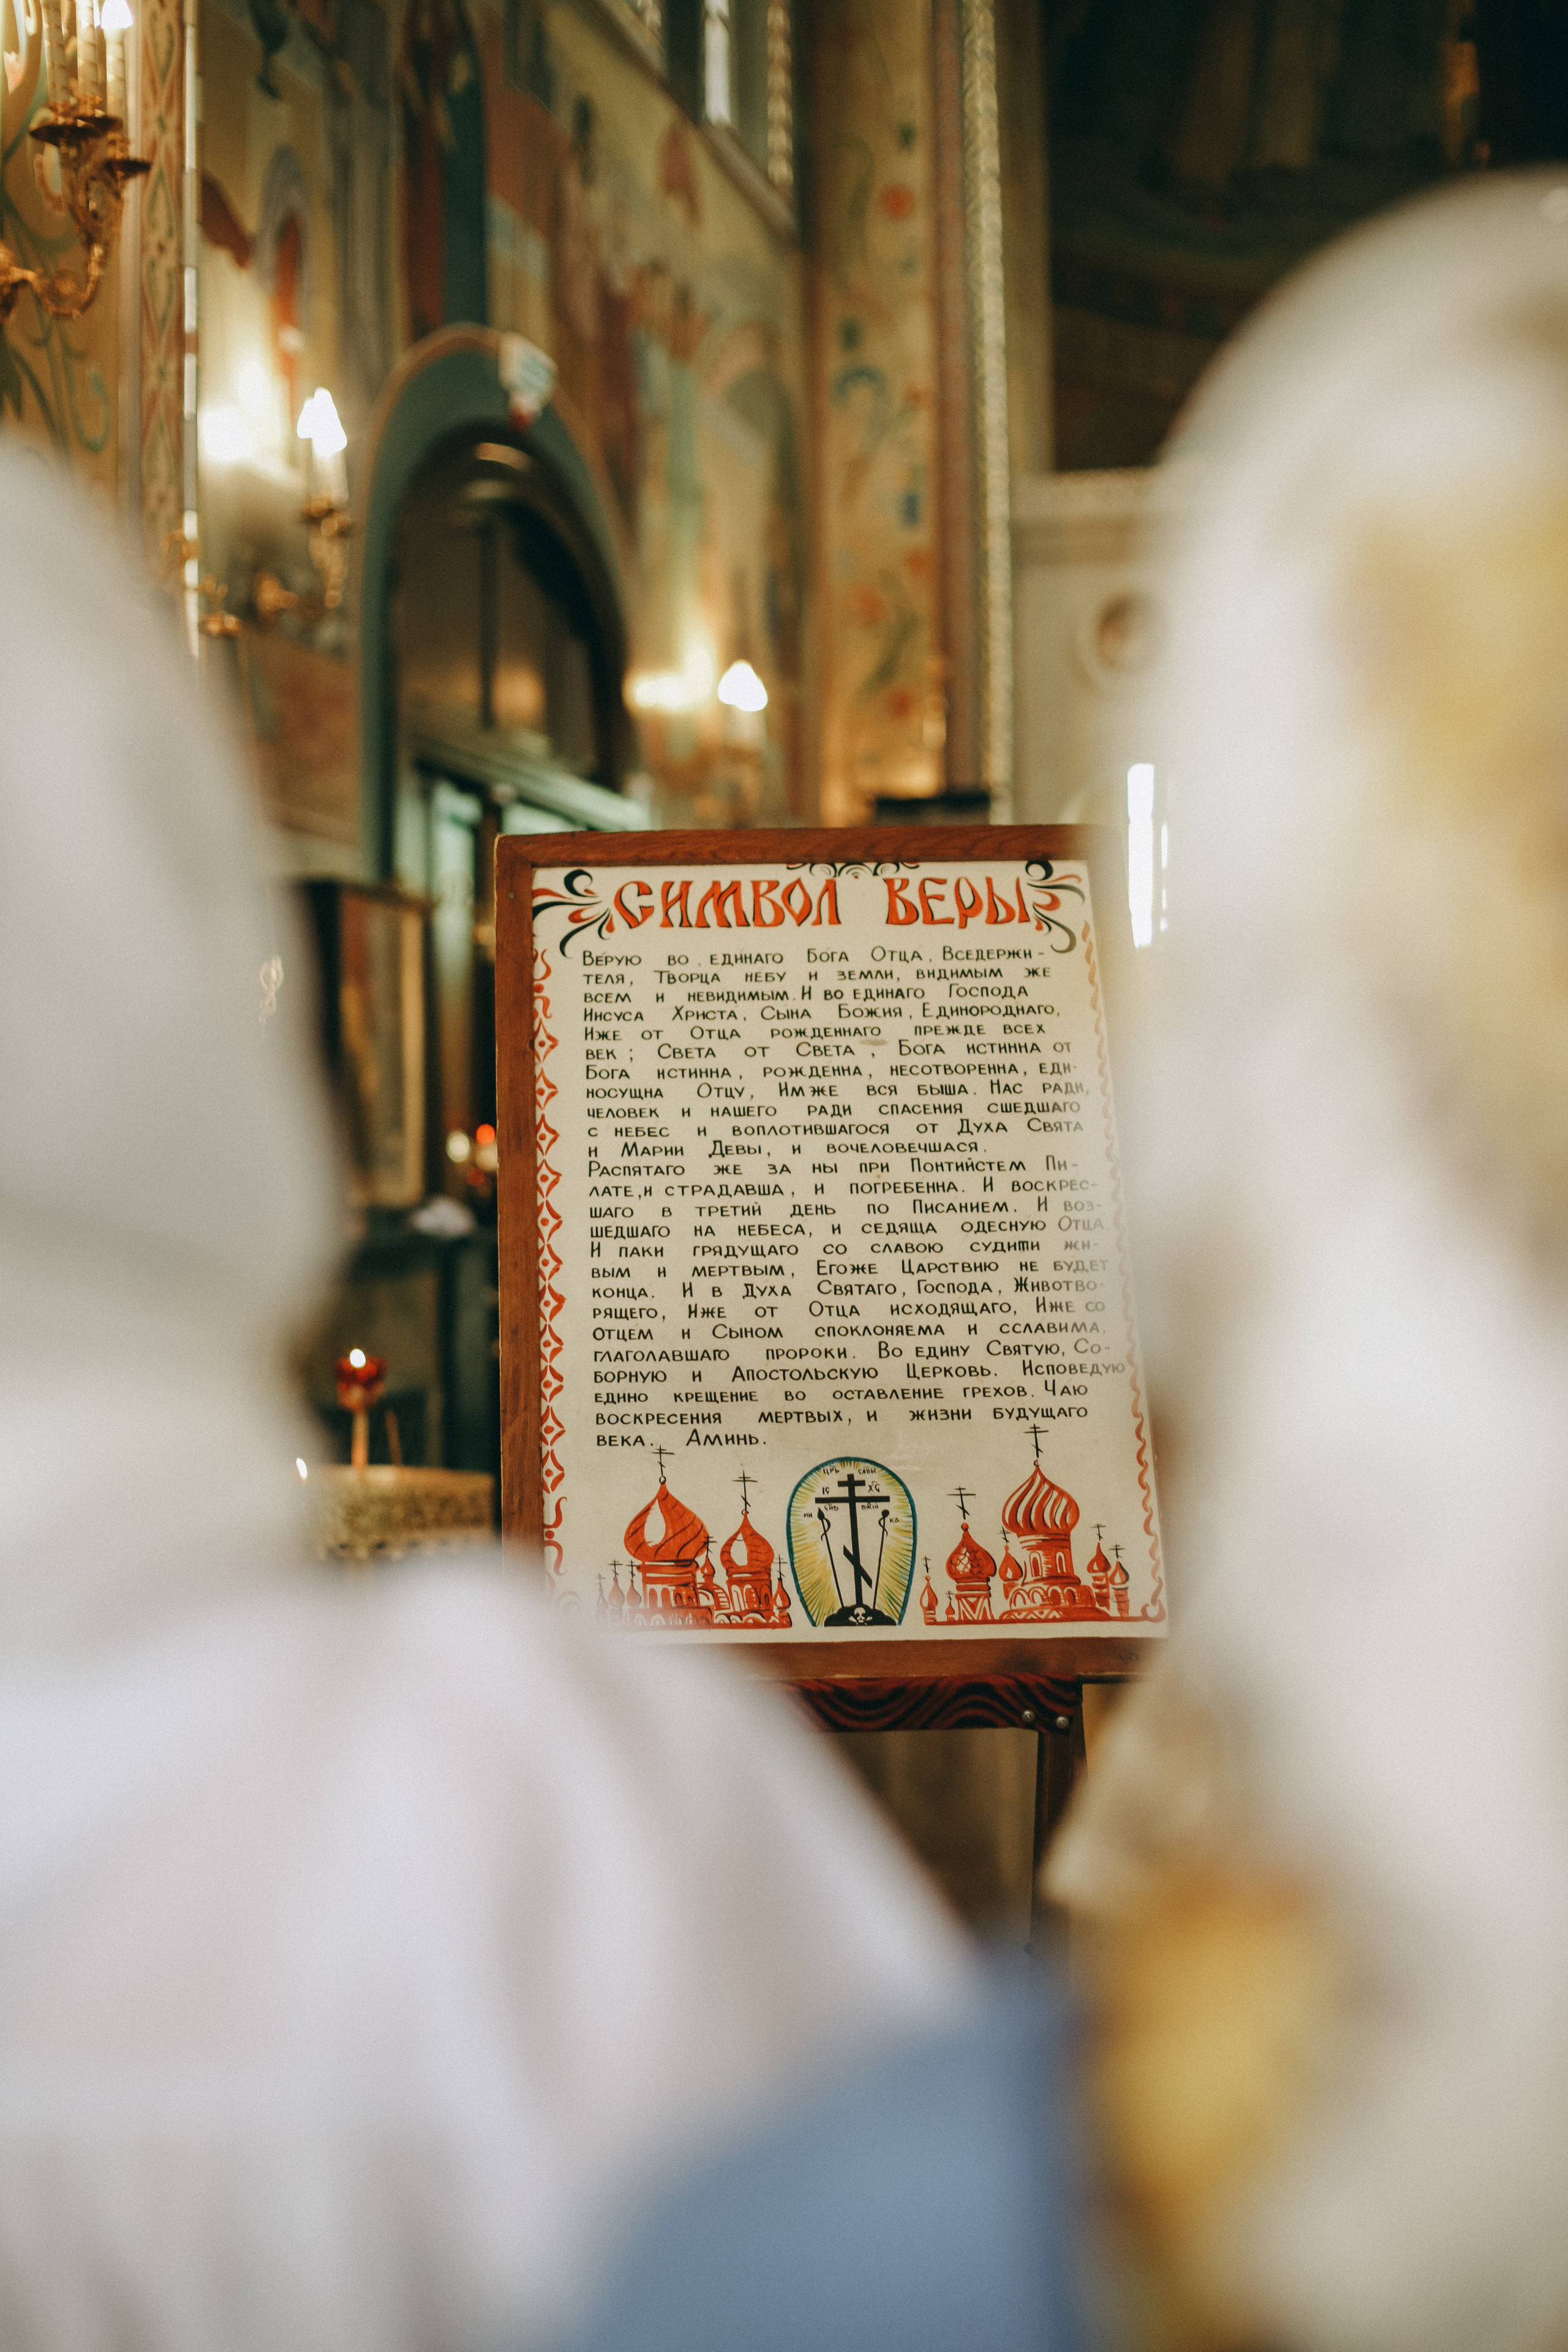 СИМВОЛ ВЕРЫ
Верую во единаго Бога Отца, Вседержи-
теля, Творца небу и земли, видимым же
всем и невидимым. И во единаго Господа
Иисуса Христа, Сына Божия, Единороднаго,
Иже от Отца рожденнаго прежде всех
век; Света от Света, Бога истинна от
Бога истинна, рожденна, несотворенна, еди-
носущна Отцу, Имже вся быша. Нас ради,
человек и нашего ради спасения сшедшаго
с небес и воплотившагося от Духа Свята
и Марии Девы, и вочеловечшася.
Распятаго же за ны при Понтийстем Пи-
лате, и страдавша, и погребенна. И воскрес-
шаго в третий день по Писанием. И воз-
шедшаго на небеса, и седяща одесную Отца.
И паки грядущаго со славою судити жи-
вым и мертвым, Егоже Царствию не будет
конца. И в Духа Святаго, Господа, Животво-
рящего, Иже от Отца исходящаго, Иже со
Отцем и Сыном споклоняема и сславима,
глаголавшаго пророки. Во едину Святую, Со-
борную и Апостольскую Церковь. Исповедую
едино крещение во оставление грехов. Чаю
воскресения мертвых, и жизни будущаго
века. Аминь.
ЦРЬ СЛВЫ
IС ХС
СНЪ БЖIЙ